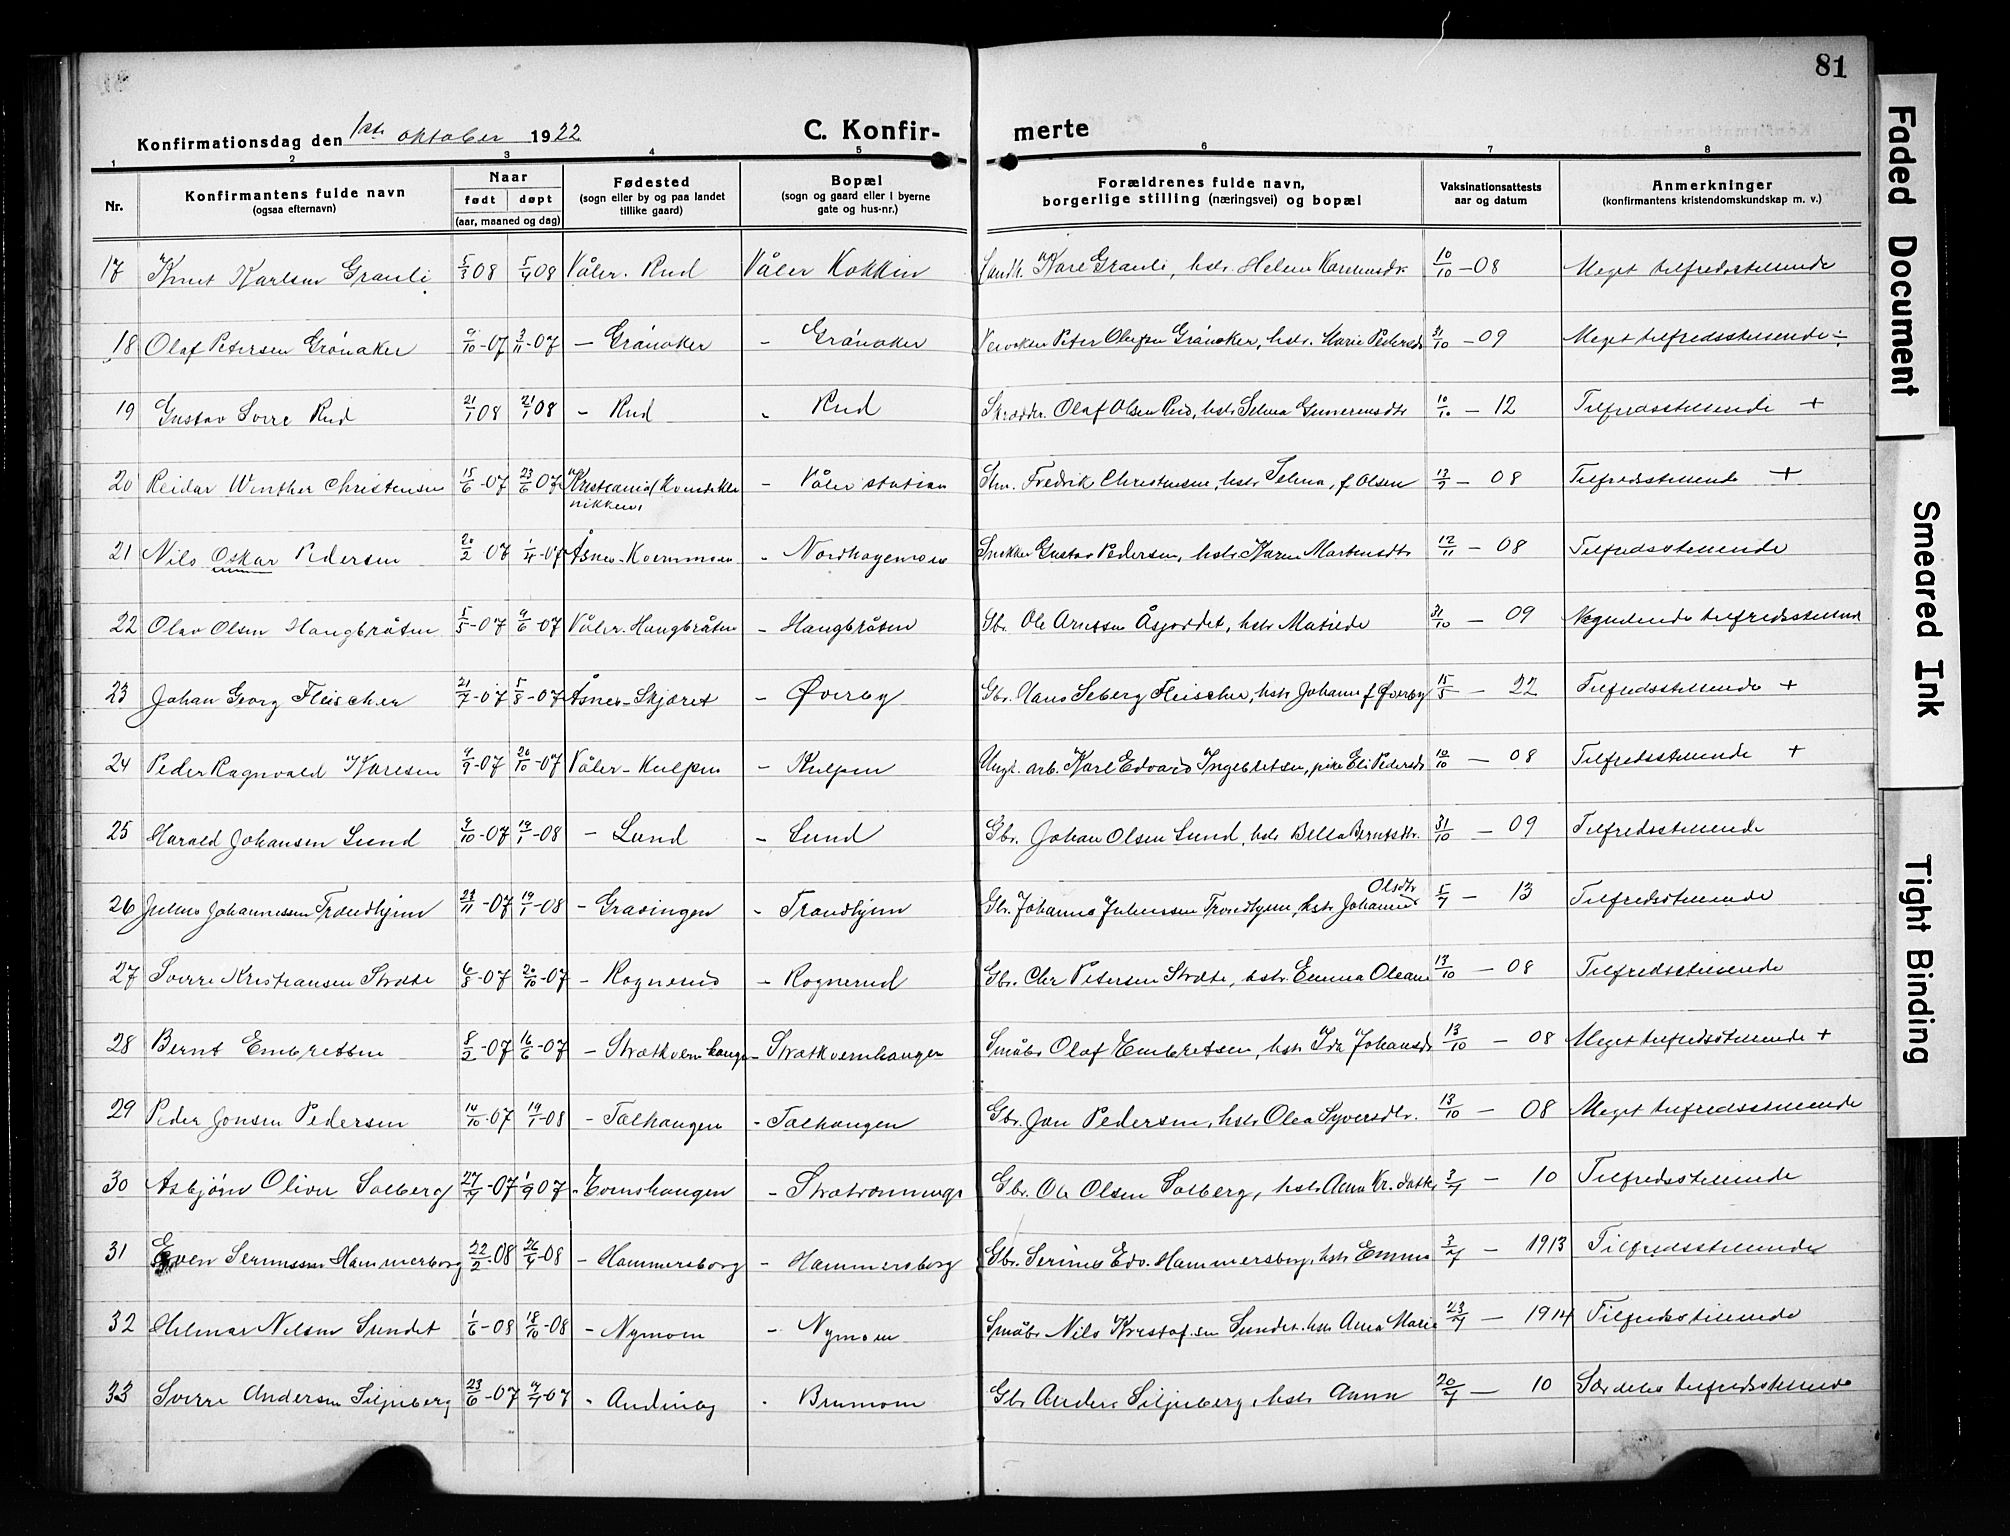 81
Konfirmationsdag den 1ste oktober 1922
C. Konfir-
merte
1 2 3 4 5 6 7 8
Nr.
Konfirmantens fulde navn
(ogsaa efternavn)
Naar
født døpt
(aar, maaned og dag)
Fødested
(sogn eller by og paa landet
tillike gaard)
Bopæl
(sogn og gaard eller i byerne
gate og hus-nr.)
Forældrenes fulde navn,
borgerlige stilling (næringsvei) og bopæl
Vaksinationsattests
aar og datum
Anmerkninger
(konfirmantens kristendomskundskap m. v.)
17 Knut Karlsen Granli 5/3 08 5/4 08 Våler. Rud Våler Kokkin Karl Granli, hstr. Helene 10/10 - 08 Meget tilfredsstillende
18 Olaf Petersen Grönaker 9/10-07 3/11-07 - Grönaker - Grönaker Peter Olufsen Grönaker, hstr. Marie Pedersdr 31/10 - 09 Meget tilfredsstillende ÷
19 Gustav Sverre Rud 21/1 08 21/1 08 - Rud - Rud Skrædder. Olaf Olsen Rud, hstr Selma Gunerusdtr 10/10 - 12 Tilfredsstillende +
20 Reidar Winther Christensen 15/6-07 23/6 07 Kristiania (Kvindekli
nikken, - Våler station Stm. Fredrik Christensen, hstr Selma, f. Olsen 13/9 - 08 Tilfredsstillende +
21 Nils Oskar Pedersen 20/2 07 1/4-07 Åsnes-Kvernmoen - Nordhagemoen Snekker Gustav Pedersen, hstr Karen Martensdtr 12/11 - 08 Tilfredsstillende
22 Olav Olsen Haugbråten 5/5-07 9/6-07 Våler. Haugbråten - Haugbråten Gbr. Ole Arnesen Åsjordet, hstr Matilde 31/10 - 09 tilfredsstillend
23 Johan Georg Fleischer 21/7-07 5/8-07 Åsnes-Skjæret - Øverby Gbr. Hans Seberg Fleischer, hstr Johanne f Øverby 15/5 - 22 Tilfredsstillende +
24 Peder Ragnvald Karlsen 9/9-07 20/10-07 Våler-Kulpen - Kulpen Ungk. arb. Karl Edvard Ingebretsen, pike Eli Pedersdr 10/10 - 08 Tilfredsstillende +
25 Harald Johansen Lund 9/10-07 19/1-08 - Lund - Lund Gbr. Johan Olsen Lund, hstr Bella Berntsdtr. 31/10 - 09 Tilfredsstillende
26 Julius Johannessen Trondhjem 24/11-07 19/1-08 - Grasingen - Trondhjem Gbr. Johannes Juliussen Trondhjem, hstr Johanne Olsdtr 5/7 - 13 Tilfredsstillende
27 Sverre Kristiansen Stræte 6/8-07 20/10-07 - Rognerud - Rognerud Gbr. Chr Petersen Stræte, hstr Emma Oleane 13/10 - 08 Tilfredsstillende
28 Bernt Embretsen 8/2-07 16/6-07 - Strætkvernhaugen - Strætkvernhaugen Småbr Olaf Embretsen, hstr Ida Johansdr 13/10 - 08 Meget tilfredsstillende +
29 Peder Jonsen Pedersen 14/10-07 19/1-08 - Talhaugen - Talhaugen Gbr. Jon Pedersen, hstr Olea Syversdtr. 13/10 - 08 Meget tilfredsstillende
30 Asbjörn Oliver Solberg 27/7-07 1/9 07 - Evenshaugen - Gbr. Ole Olsen Solberg, hstr Anna Kr. 3/7 - 10 Tilfredsstillende
31 Even Serinussen Hammersborg 22/2-08 26/4-08 - Hammersborg - Hammersborg Gbr. Serinus Edv. Hammersberg, hstr Emma 3/7 - 1913 Tilfredsstillende
32 Helmar Nilsen Sundet 1/6-08 18/10-08 - Nymoen - Nymoen Småbr Nils Kristofsen Sundet, hstr Anna Marie 23/7 - 1914 Tilfredsstillende
33 Sverre Andersen Siljuberg 23/6-07 9/7-07 - - Brumoen Gbr Anders Siljuberg, hstr Anna 20/7 - 10 Særdeles tilfredsstillende
Faded Document
Smeared Ink
Tight Binding